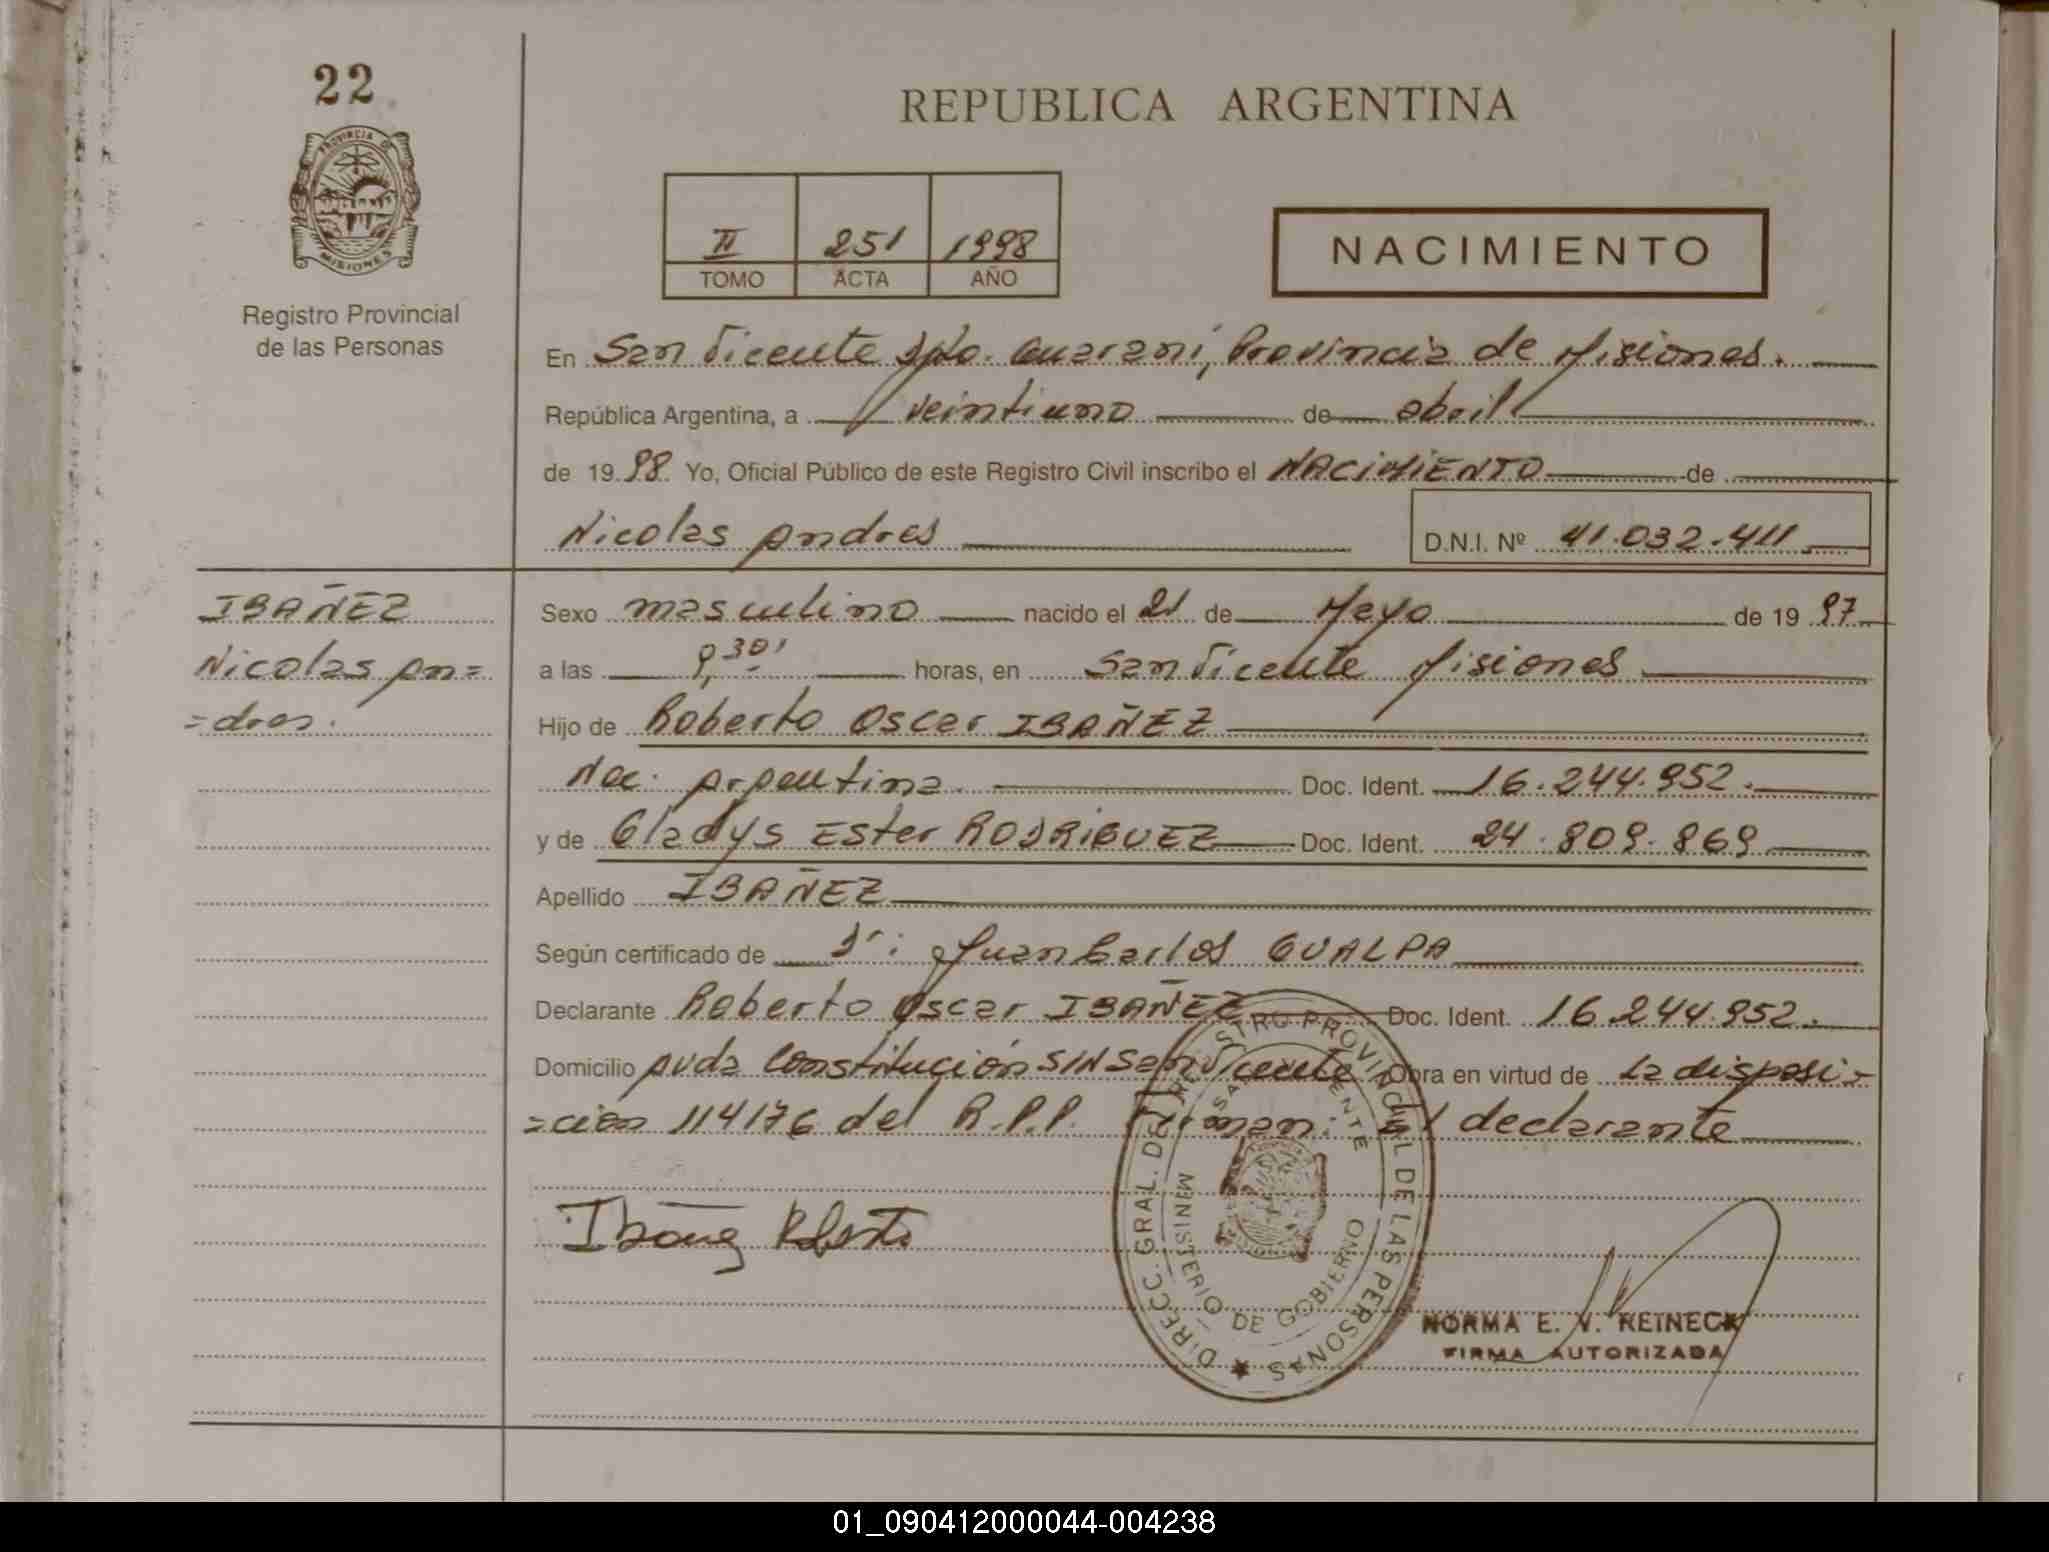 22
REPUBLICA ARGENTINA
PROVINCIA DE
MISIONES
Registro Provincial
de las Personas
II 251 1998
TOMO ACTA AÑO
NACIMIENTO
En San Vicente Dpto. Guaraní, Provincia de Misiones.
República Argentina, a veintiuno de abril
de 1998 Yo, Oficial Público de este Registro Civil inscribo el NACIMIENTO de
Nicolas Andres D.N.I. Nº 41.032.411
IBAÑEZ
Nicolas An=
=dres.
Sexo masculino nacido el 21 de Mayo de 1997
a las 9,30' horas, en San Vicente Misiones
Hijo de Roberto Oscar IBAÑEZ
Nac. Argentina. Doc. Ident. 16.244.952.
y de Gladys Ester RODRIGUEZ Doc. Ident. 24.809.869
Apellido IBAÑEZ
Según certificado de Dr: Juan Carlos GUALPA
Declarante Roberto Oscar IBAÑEZ Doc. Ident. 16.244.952.
Domicilio Avda Constitución S/N San Vicente Obra en virtud de La disposi=
=cion 114/76 del R.P.P. Firman: El declarante
Ibañez Roberto
DIRECC. GRAL. DEL REGISTRO PROVINCIAL DE LAS PERSONAS
SAN VICENTE
MINISTERIO DE GOBIERNO
NORMA E. V. REINECK
FIRMA AUTORIZADA
01_090412000044-004238